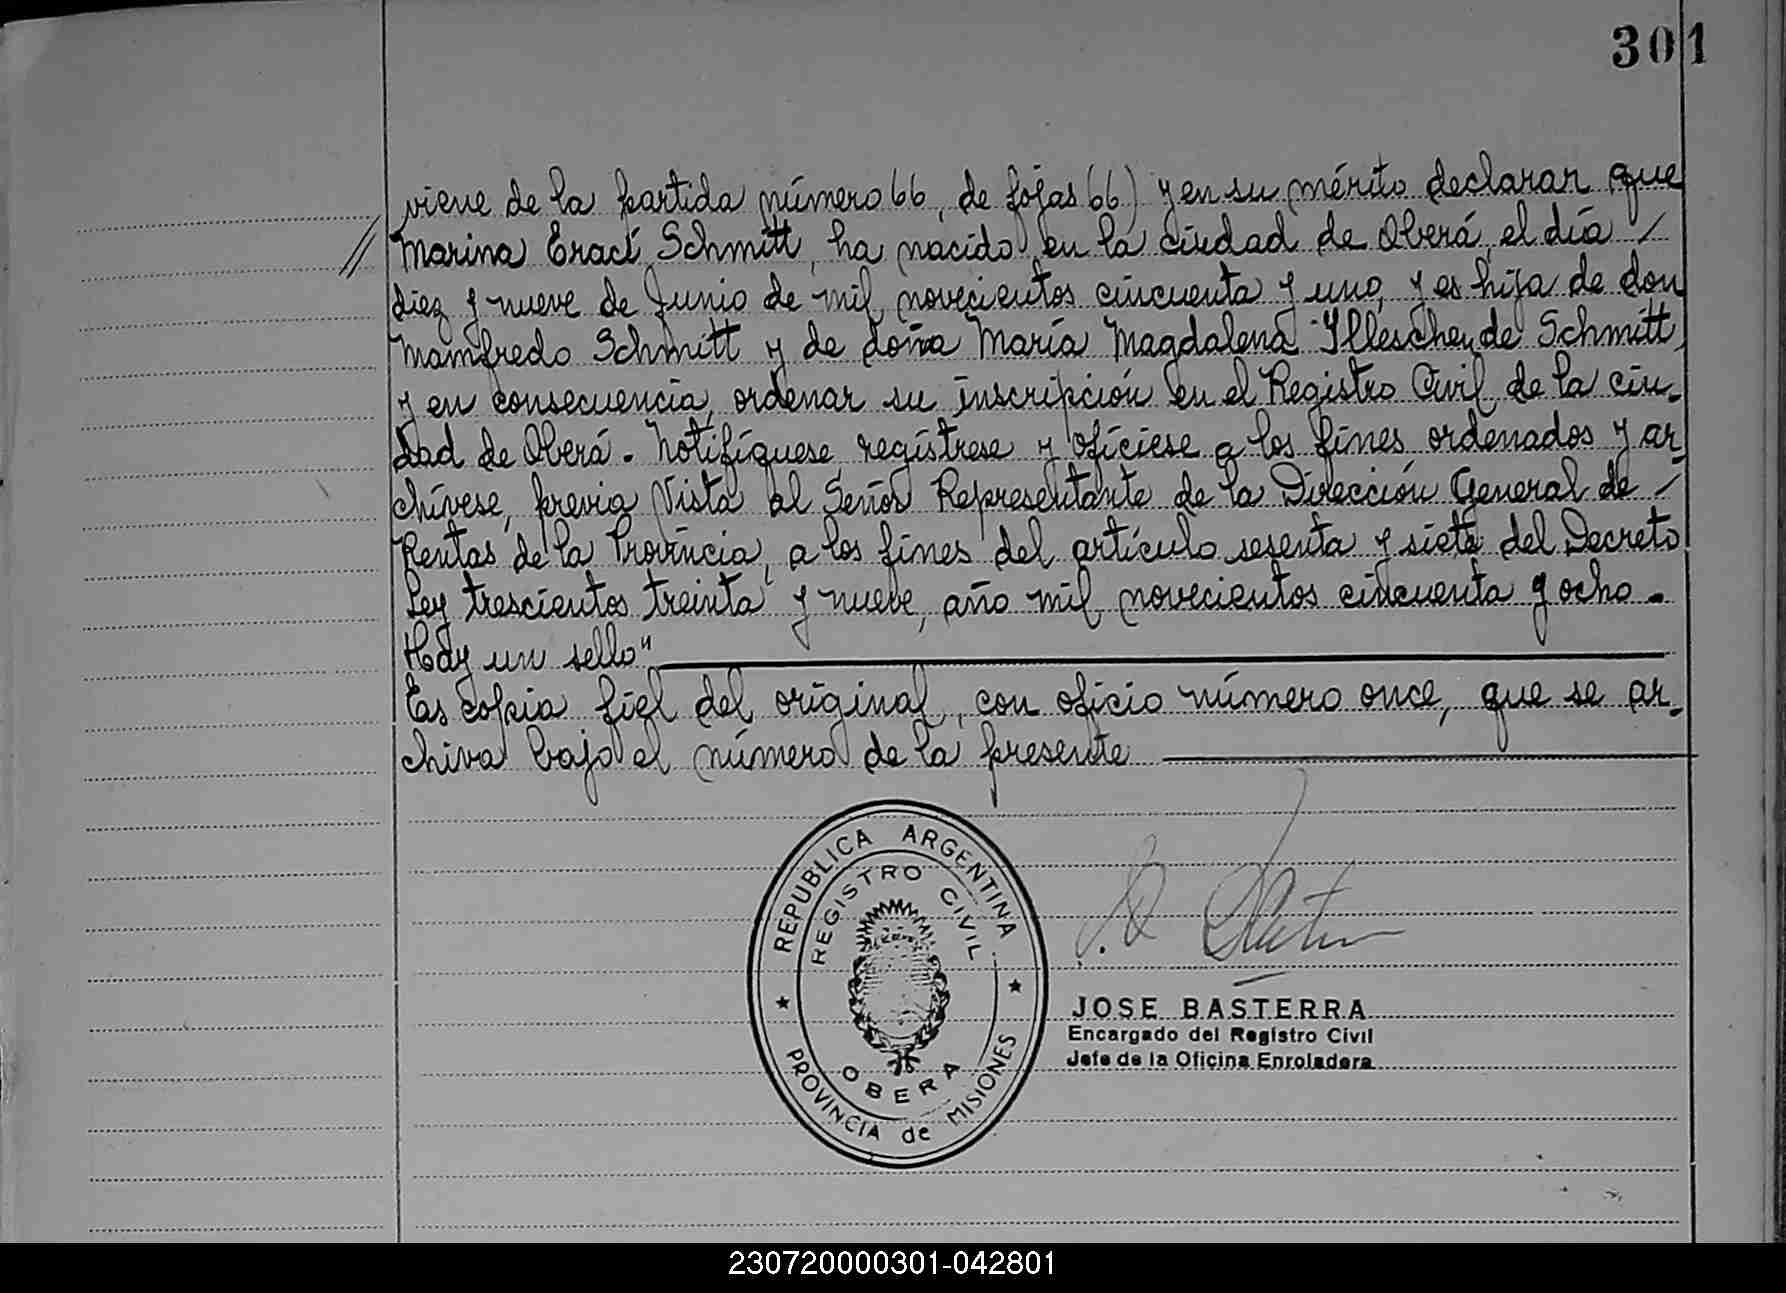 301
viene de la partida número 66, de fojas 66) y en su mérito declarar que
// Marina Eraci Schmitt, ha nacido en la ciudad de Oberá, el día /
diez y nueve de Junio de mil novecientos cincuenta y uno, y es hija de don
Manfredo Schmitt y de doña María Magdalena de Schmitt,
y en consecuencia, ordenar su inscripción en el Registro Civil de la ciu-
dad de Oberá. Notifíquese, regístrese y ofíciese a los fines ordenados y ar-
chívese, previa Vista al Señor Representante de la Dirección General de /
Rentas de la Provincia, a los fines del artículo sesenta y siete del Decreto
Ley trescientos treinta y nueve, año mil novecientos cincuenta y ocho.-
Hay un sello"
Es copia fiel del original, con oficio número once, que se ar-
chiva bajo el número de la presente
REPUBLICA ARGENTINA
REGISTRO CIVIL
OBERA
PROVINCIA de MISIONES
JOSE BASTERRA
Encargado del Registro Civil
Jefe de la Oficina Enroladora
230720000301-042801